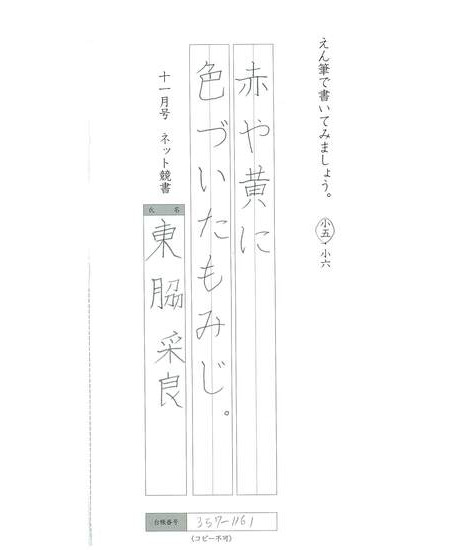 えん筆で書いてみましょう。
小五・小六
赤や黄に
色づいたもみじ。
十一月号 ネット競書
氏 名
東脇采良
台帳番号 357-1161
(コピー不可)